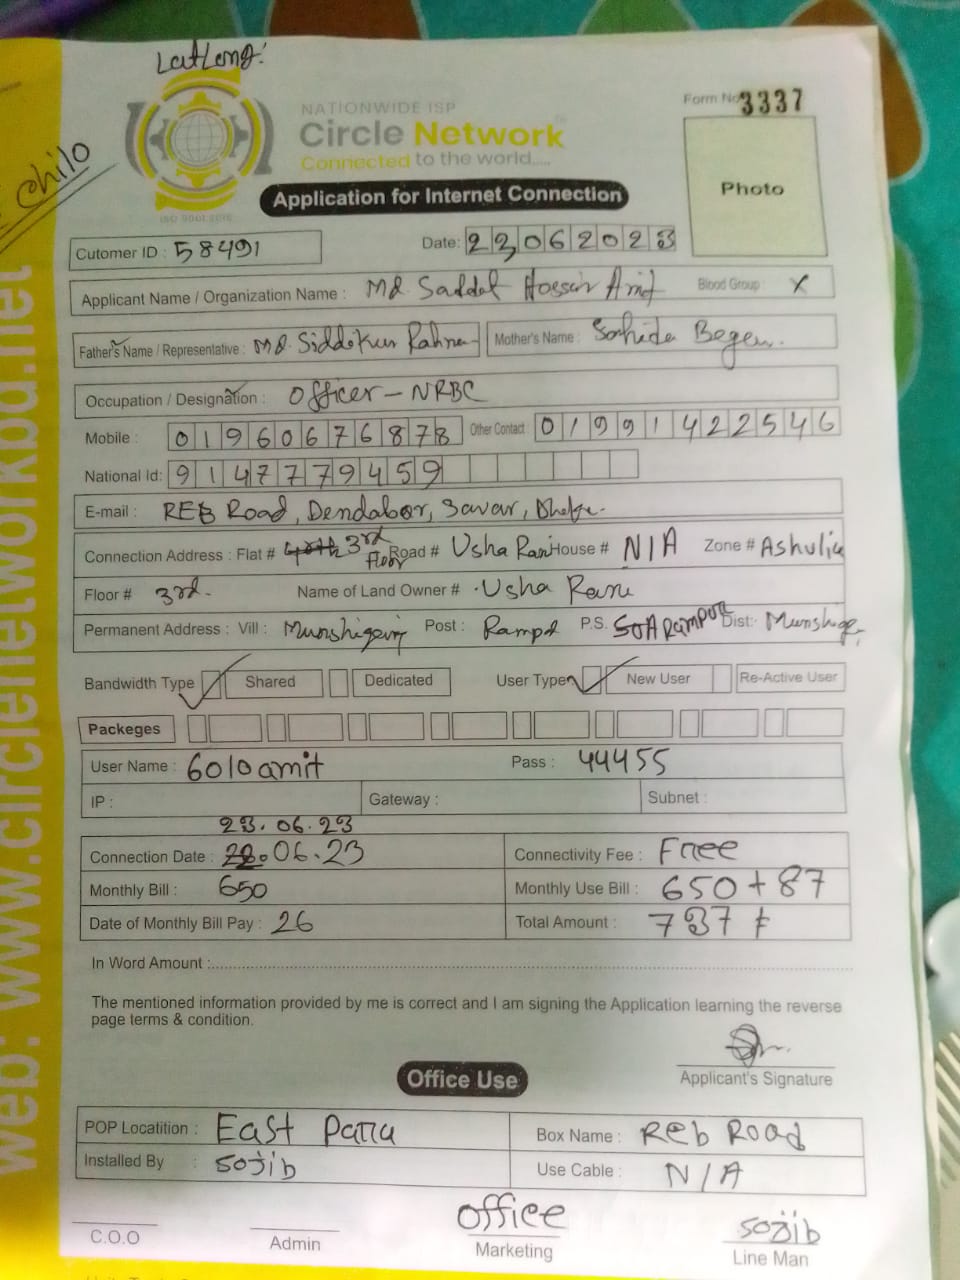 LatLong:
chilo
NATIONWIDE ISP
Circle Network
Connected to the world.....
ISO 9001:2015
Form No 3337
Photo
Application for Internet Connection
Cutomer ID : 58491 Date: 23062023
Applicant Name / Organization Name : Md Saddat Hossain Amit Blood Group : X
Father's Name / Representative : Md. Siddikur Rahman Mother's Name : Begum.
Occupation / Designation : Officer - NRBC
Mobile : 01960676878 Other Contact : 01991422546
National Id: 9147779459
E-mail : REB Road, Dendabor, Savar, Dhaka.
Connection Address : Flat # 3rd Floor Road # Usha Rani House # N/A Zone # Ashulia
Floor # 3rd. Name of Land Owner # Usha Rani
Permanent Address : Vill : Munshigonj Post : P.S. Dist:
Bandwidth Type Shared Dedicated User Type New User Re-Active User
Packeges
User Name : 6010amit Pass : 44455
IP : Gateway : Subnet :
23.06.23
Connection Date : 22.06.23 Connectivity Fee : Free
Monthly Bill : 650 Monthly Use Bill : 650 + 87
Date of Monthly Bill Pay : 26 Total Amount : 737 ৳
In Word Amount :
The mentioned information provided by me is correct and I am signing the Application learning the reverse
page terms & condition.
Applicant's Signature
Office Use
POP Locatition : East Para Box Name : Reb Road
Installed By : Sojib Use Cable : N/A
C.O.O Admin office Marketing Sojib Line Man
web: www.circlenetworkbd.net